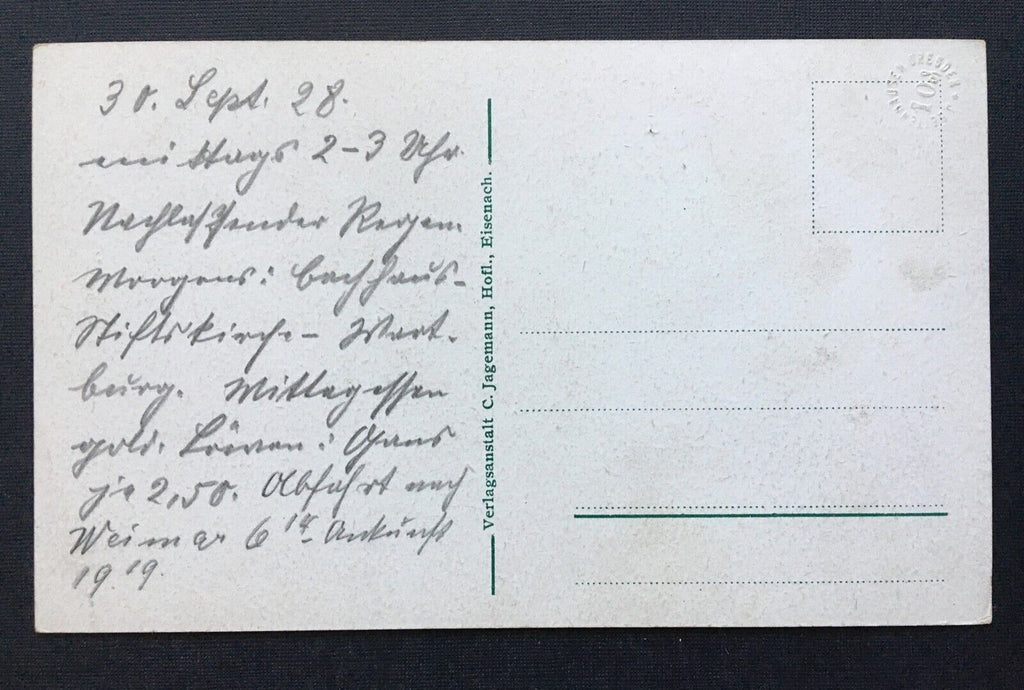 30. Sept. 28.
mittags 2-3 Uhr.
Nachlassender Regen.
Morgens: Bachhaus-
Stiftskirche - Wart-
burg. Mittagessen
gold. Löwen: Gans
je 2,50. Abfahrt nach
Weimar 6 Ankunft
19.19.
Verlagsanstalt C. Jagemann, Hofl., Eisenach.
DRESDEN